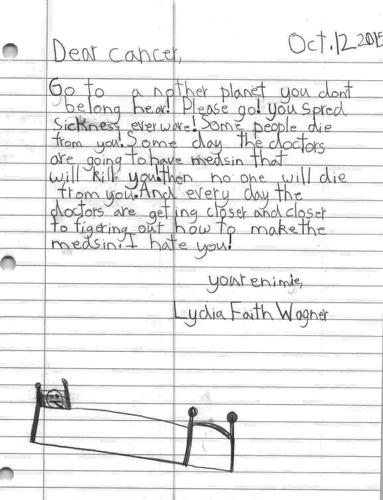 Oct. 12 2015
Dear cancer,
Go to a nother planet you dont
belong hear! Please go! you spred
sickness everware! Some people die
from you! Some day the doctors
are going to have medsin that
will kill you. then no one will die
from you. And every day the
doctors are geting closer and closer
to figering out how to make the
medsin. I hate you!
your enimie,
Lydia Faith Wagner